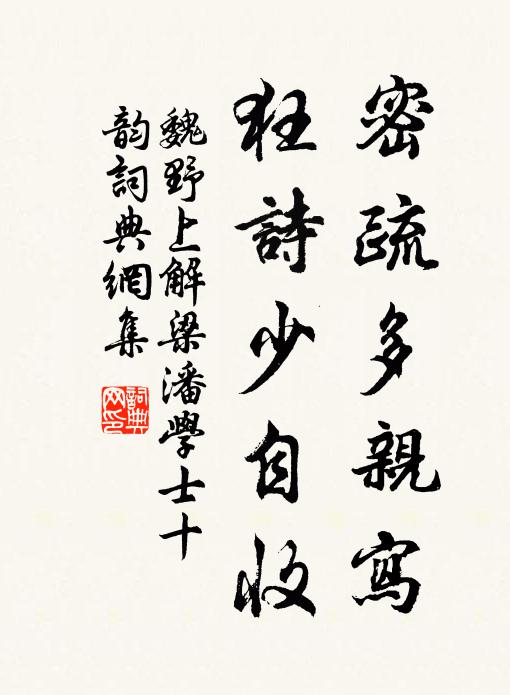 密疏多親寫
狂詩少自收
魏野上解梁潘學士十
韵詞典網集
詞典
网印